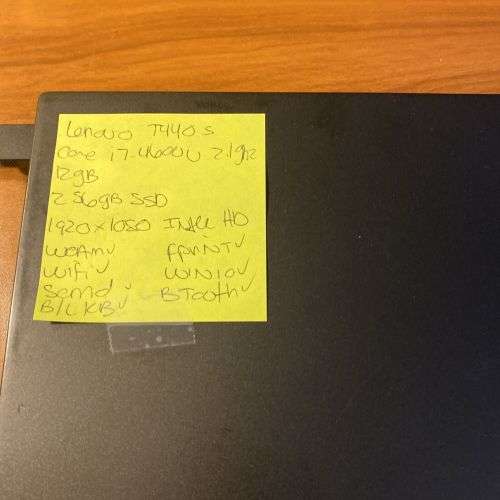 Lenovo T440s
Core i7-4600U 2.1ghz
12gB
256gB SSD
1920x1080 Intel HD
WCAM✓ FPRINT✓
WiFi✓ WIN10✓
Sound✓ BTooth✓
B/L KB✓